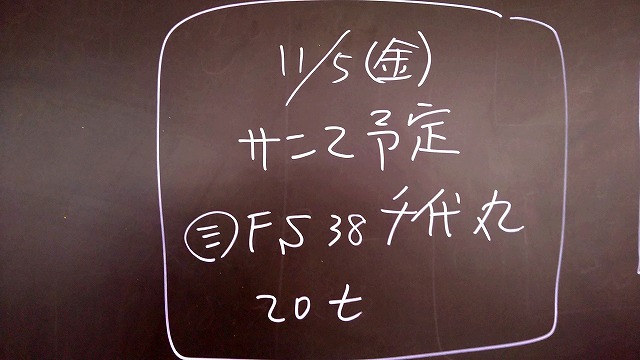 11/5(金)
サンマ予定
㊂FS38千代丸
20t